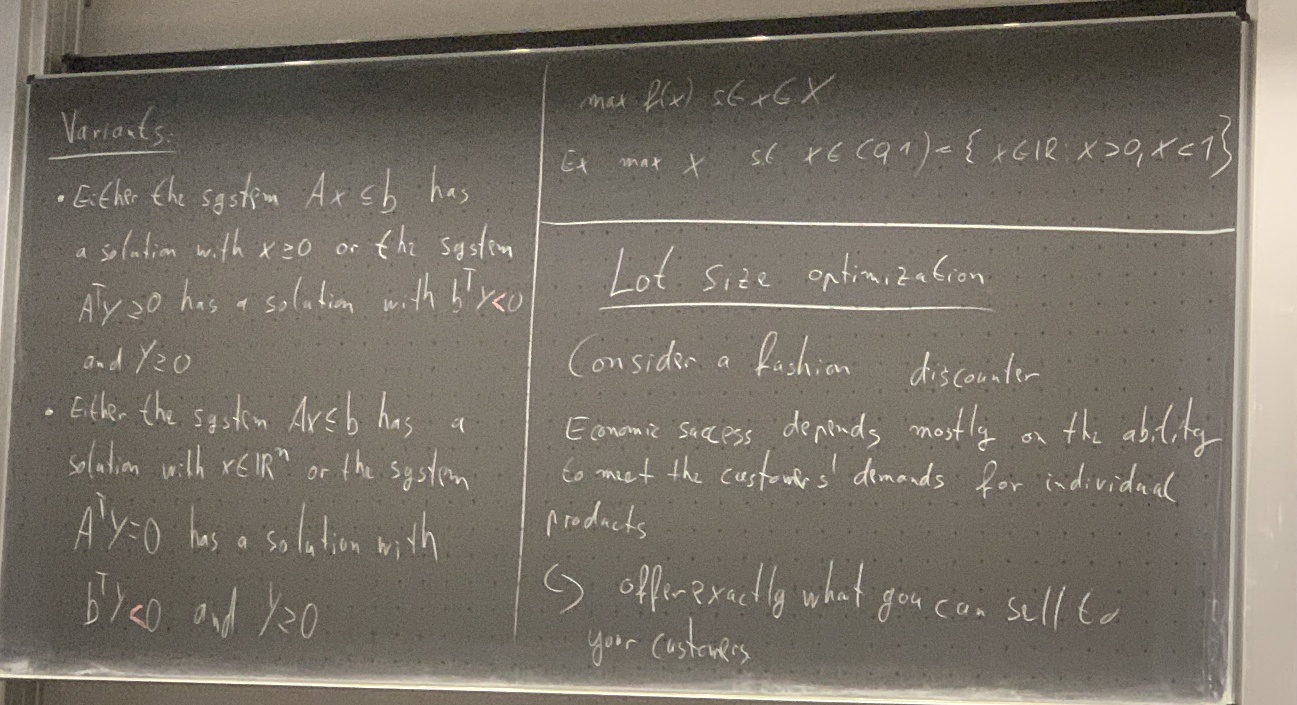 Variants:
• Either the system Ax ≤ b has
a solution with x ≥ 0 or the system
Aᵀy ≥ 0 has a solution with bᵀy < 0
and y ≥ 0
• Either the system Ax ≤ b has a
solution with x ∈ ℝⁿ or the system
Aᵀy = 0 has a solution with
bᵀy < 0 and y ≥ 0
max f(x) st x ∈ X
Ex max x st x ∈ (0,1) = { x ∈ ℝ : x > 0, x < 1 }
Lot size optimization
Consider a fashion discounter
Economic success depends mostly on the ability
to meet the customers' demands for individual
products
↪ offer exactly what you can sell to
your customers